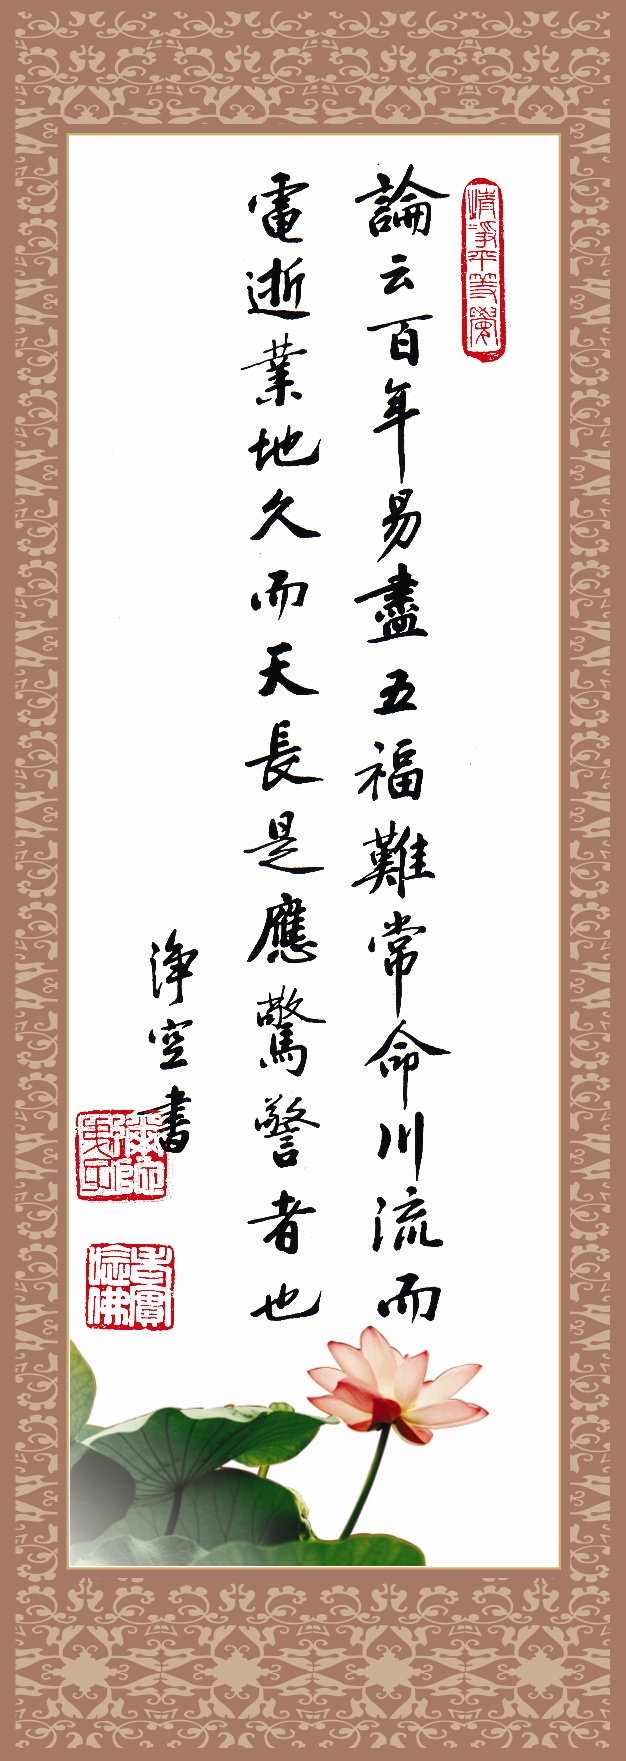 清淨平等覺
論云百年易盡五福難常命川流而
電逝業地久而天長是應驚警者也
淨空書
老實念佛